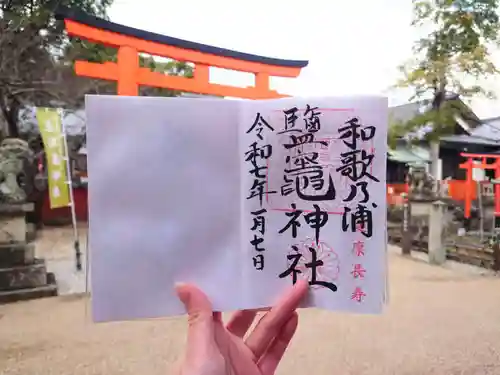 和歌乃浦
健康長寿
鹽竈神社
令和七年一月七日